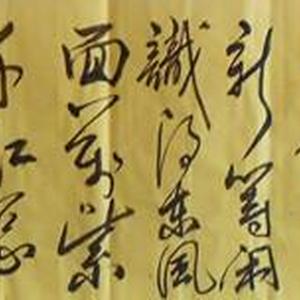 新等閑
識得東風
面萬紫
千紅總